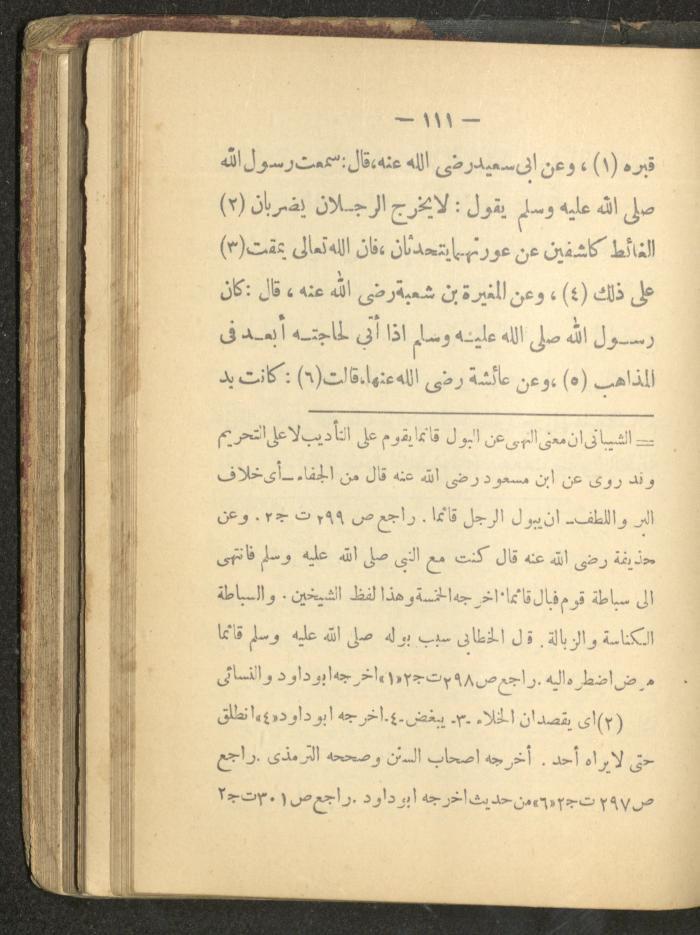 — ١١١ —
قبره (١) ، وعن ابى سعيد رضى الله عنه، قال: سمعت رسول الله
صلى الله عليه وسلم يقول : لا يخرج الرجـلان يضربان (٢)
الغائط كاشفين عن عورتهـما يتحدثان ، فان الله تعالى يمقت (٣)
على ذلك (٤) ، وعن المغيرة بن شعبة رضى الله عنه ، قال : كان
رسـول الله صلى الله عليـه وسلم اذا أتى لحاجتـه أبعـد فى
المذاهب (٥) ، وعن عائشة رضى الله عنها، قالت (٦) : كانت يد
= الشيبانى ان معنى النهى عن البول قائما يقوم على التأديب لا على التحريم
وقد روى عن ابن مسعود رضى الله عنه قال من الجفاء ــ أى خلاف
البر واللطف ــ ان يبول الرجل قائما . راجع ص ٢٩٩ ت ج٢ . وعن
حذيفة رضى الله عنه قال كنت مع النبي صلى الله عليه وسلم فانتهى
الى سباطة قوم فبال قائما . اخرجه الخمسة وهذا لفظ الشيخين . والسباطة
الكناسة والزبالة . قال الخطابى سبب بوله صلى الله عليه وسلم قائما
مرض اضطره اليه . راجع ص ٢٩٨ ت ج٢ «١» اخرجه ابو داود والنسائى
(٢) اى يقصدان الخلاء -٣- يبغض -٤- اخرجه ابو داود «٤» انطلق
حتى لا يراه أحد . أخرجه اصحاب السنن وصححه الترمذى . راجع
ص ٢٩٧ ت ج٢ «٦» من حديث اخرجه ابو داود . راجع ص ٣٠١ ت ج٢